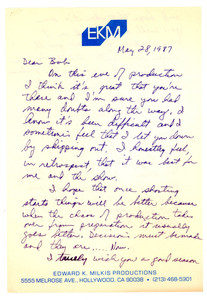 EKM
May 28, 1987
Dear Bob
On this eve of production
I think it's great that you're
there and I'm sure you had
many doubts along the way. I
know it's been difficult and I
sometimes feel that I let you down
by skipping out. I honestly feel,
in retrospect that it was best for
me and the show.
I hope that once shooting
starts things will be better because
when the chaos of production takes
over from preparation it usually
goes better. Decisions must be made
and they are..... Now.
I truely wish you a good season
EDWARD K. MILKIS PRODUCTIONS
5555 MELROSE AVE., HOLLYWOOD, CA 90038 • (213) 468-5901